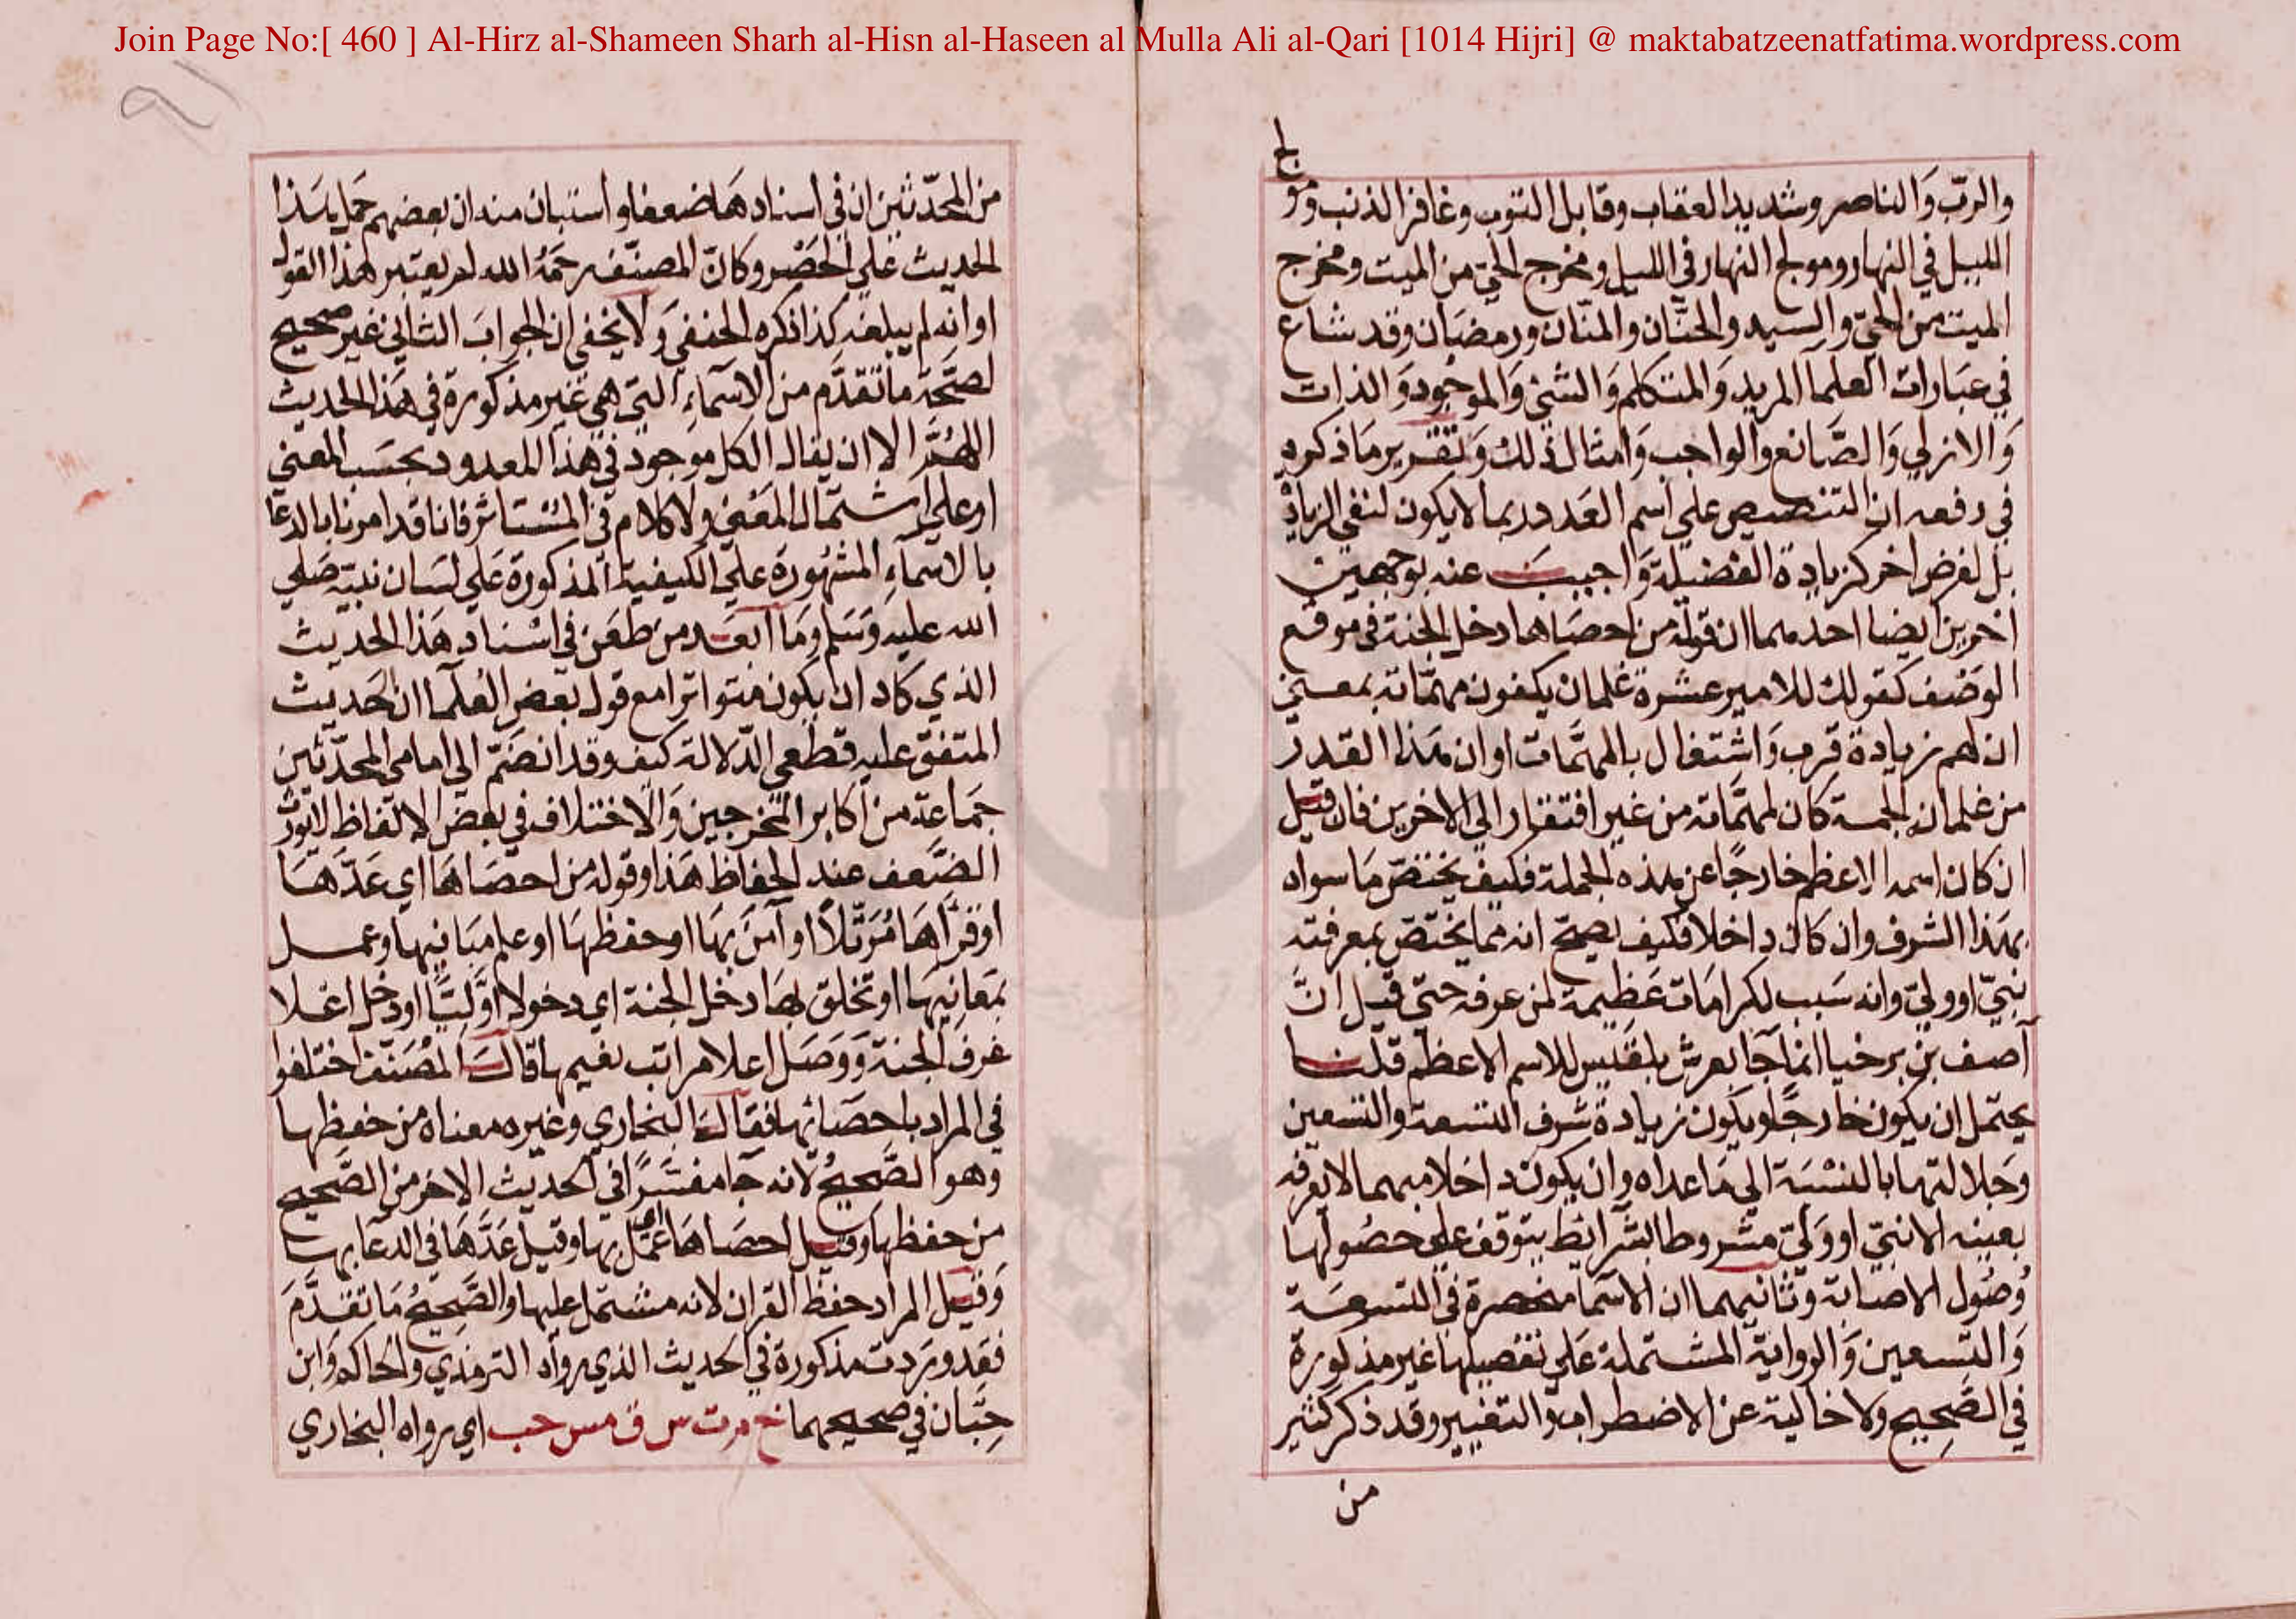 Join Page No:[ 460 ] Al-Hirz al-Shameen Sharh al-Hisn al-Haseen al Mulla Ali al-Qari [1014 Hijri] @ maktabatzeenatfatima.wordpress.com
والربّ والناصر وشديد العقاب وقابل التوب وغافر الذنب ومولج
الليل في النهار ومولج النهار في الليل ومخرج الحيّ من الميت ومخرج
الميت من الحيّ والسيد والحنّان والمنّان ورمضان وقد شاع
في عبارات العلما المريد والمتكلم والشيء والموجود والذات
والازلي والصّانع والواجب وامثال ذلك وتقرير ما ذكروه
في دفعه ان التنصيص على اسم العدد ربما لا يكون لنفي الزيادة
بل لغرض اخر كزيادة الفضيلة واجيب عنه بوجهين
اخرين ايضا احدهما ان قوله من احصاها دخل الجنة في موقع
الوصف كقولك للامير عشرة غلمان يكفون مهمّاته بمعنى
ان لهم زيادة قرب واشتغال بالمهمّات او ان هذا القدر
من غلمانه الجمة كان لمهمّاته من غير افتقار الى الاخرين فان قيل
ان كان اسمه الاعظم خارجًا عن هذه الجملة فكيف يختصّ ما سواه
بهذا الشرف وان كان داخلا فكيف يصحّ انه مما يختصّ بمعرفته
نبيّ او وليّ وانه سبب لكرامات عظيمة لمن عرفه حتى قيل انّ
آصف بن برخيا انما جا بعرش بلقيس للاسم الاعظم قلنا
يحتمل ان يكون خارجًا ويكون زيادة شرف التسعة والتسعين
وجلالتها بالنسبة الى ما عداه وان يكون داخلا مبهما لا يعرفه
بعينه الا نبيّ او وليّ مشروطا بشرائط يتوقف على حصولها
وصول الاصابة وثانيهما ان الاسما منحصرة في التسعة
والتسعين والرواية المشتملة على تفصيلها غير مذكورة
في الصّحيح ولا خالية عن الاضطراب والتغيير وقد ذكر كثير
من
من المحدّثين ان في اسنادها ضعفا واستبان منه ان بعضهم حمل هذا
الحديث على الحصر وكان المصنّف رحمه الله لم يعتبر هذا القول
او انه لم يبلغه كذا ذكره الحنفي ولا يخفى ان الجواب الثاني غير صحيح
لصحّة ما تقدّم من الاسماءِ التي هي غير مذكورة في هذا الحديث
اللهُمَّ الا ان يقال الكل موجود في هذا المعدود بحسب المعنى
او على اشتمال المعنى ولا كلام في المستاثر فانا قد امرنا بالدعا
بالاسماءِ المشهورة على الكيفية المذكورة على لسان نبيّه صلى
الله عليه وسلم وما ابعد من طعن في اسناد هذا الحديث
الذي كاد ان يكون متواترا مع قول بعض العلما ان الحديث
المتفق عليه قطعي الدّلالة كيف وقد انضمّ الى امامي المحدّثين
جماعة من اكابر المخرجين والاختلاف في بعض الالفاظ لا يورث
الضّعف عند الحفاظ هذا وقوله من احصاها اي عدّها
او قرأها مُرتّلاً او آمن بها او حفظها او علم مبانيها وعمل
بمعانيها او تخلق بها دخل الجنة اي دخولا اوّليًّا او دخل اعلا
غرف الجنة ووصل اعلا مراتب نعيمها قال المصنّف اختلفوا
في المراد باحصائها فقال البخاري وغيره معناه من حفظها
وهو الصّحيحُ لانه جا مفسّرًا في الحديث الاخر من الصّحيح
من حفظها وقيل احصاها اي عمل بها وقيل عدّها في الدعا بها
وقيل المراد حفظ القران لانه مشتمل عليها والصّحيحُ ما تقدّم
فقد وردت مذكورة في الحديث الذي رواه الترمذي والحاكم وابن
حِبّان في صحيحهما خ م ت س ق مس حب اي رواه البخاري